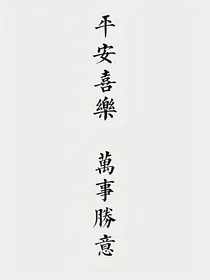 平安喜樂 萬事勝意